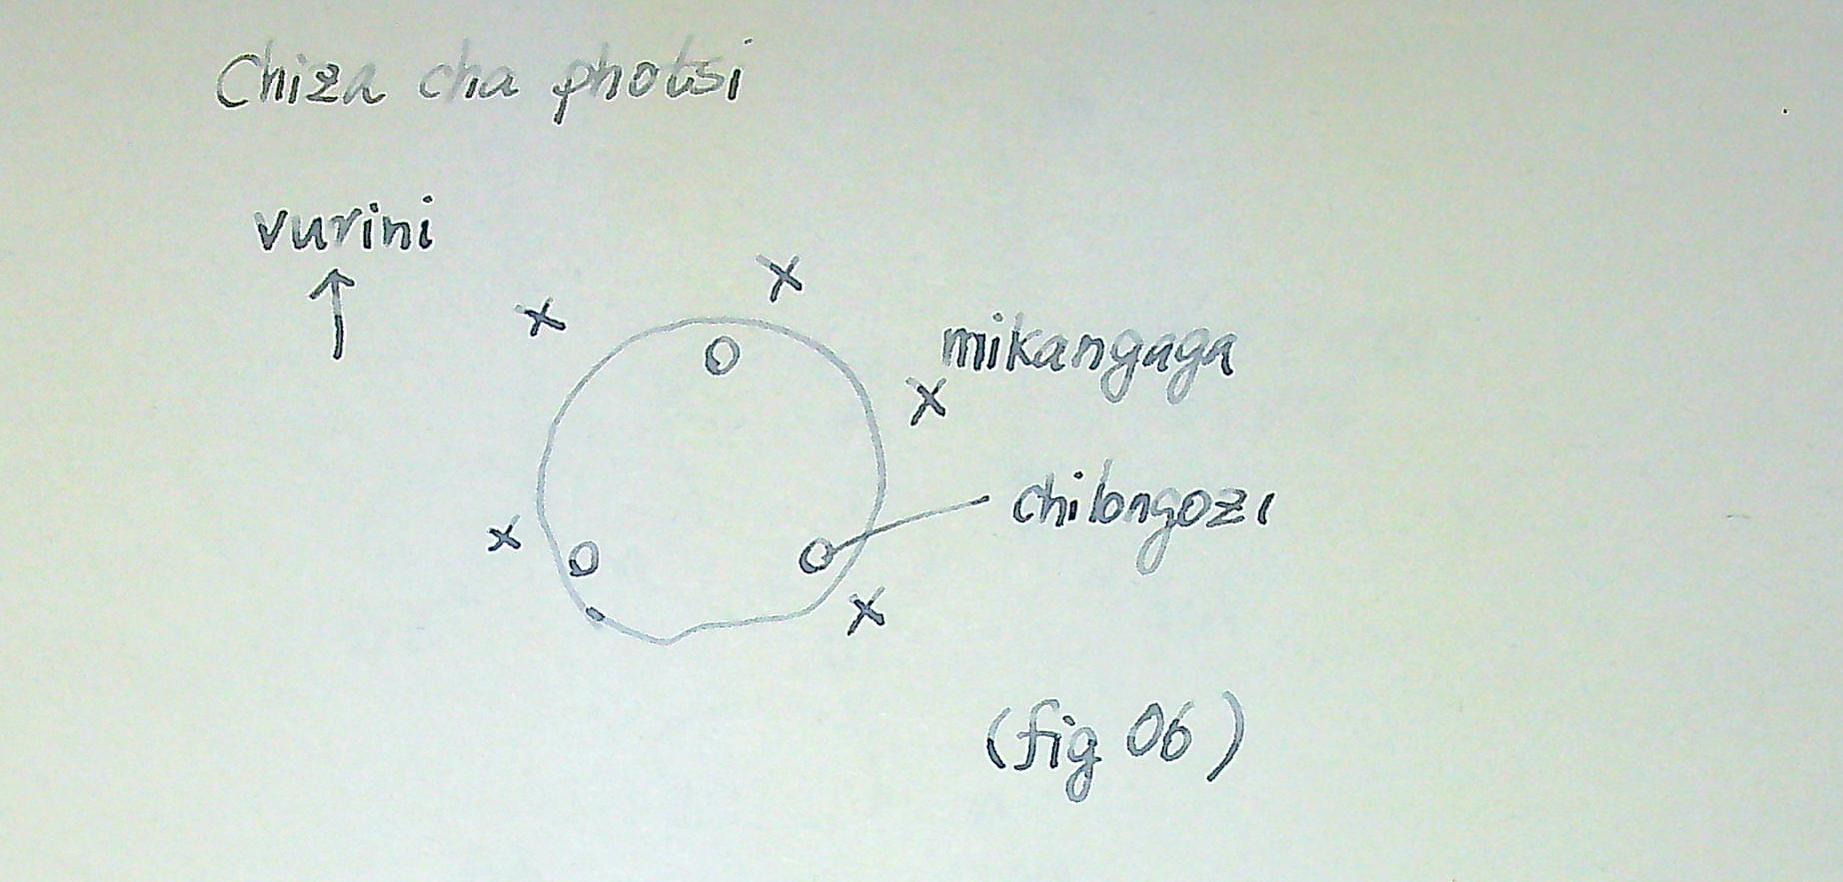 Chiza cha photsi
vurini
mikangaga
chilongozi
(fig 06)